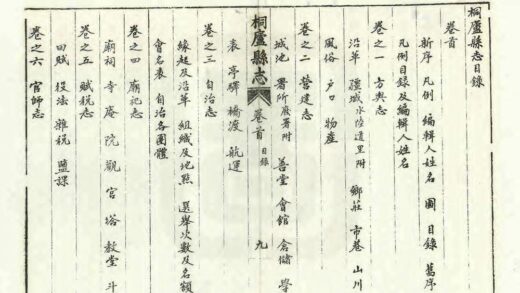 桐廬縣志目錄
卷首
新序 凡例 編輯人姓名 圖 目錄 舊序
凡例目錄及編輯人姓名
卷之一 方輿志
沿革 疆域水陸道里附 鄉莊 市巷 山川
風俗 戶口 物產
卷之二 營建志
城池 署所廢署附 善堂 會館 倉儲 學
桐廬縣志 卷首 目錄 九
表 亭碑 橋渡 航運
卷之三 自治志
緣起及沿革 組織及地點 選舉次數及名額
會名表 自治各團體
卷之四 廟祀志
廟祠 寺庵 院觀 宮塔 教堂 斗
卷之五 賦稅志
田賦 役法 雜稅 鹽課
卷之六 官師志